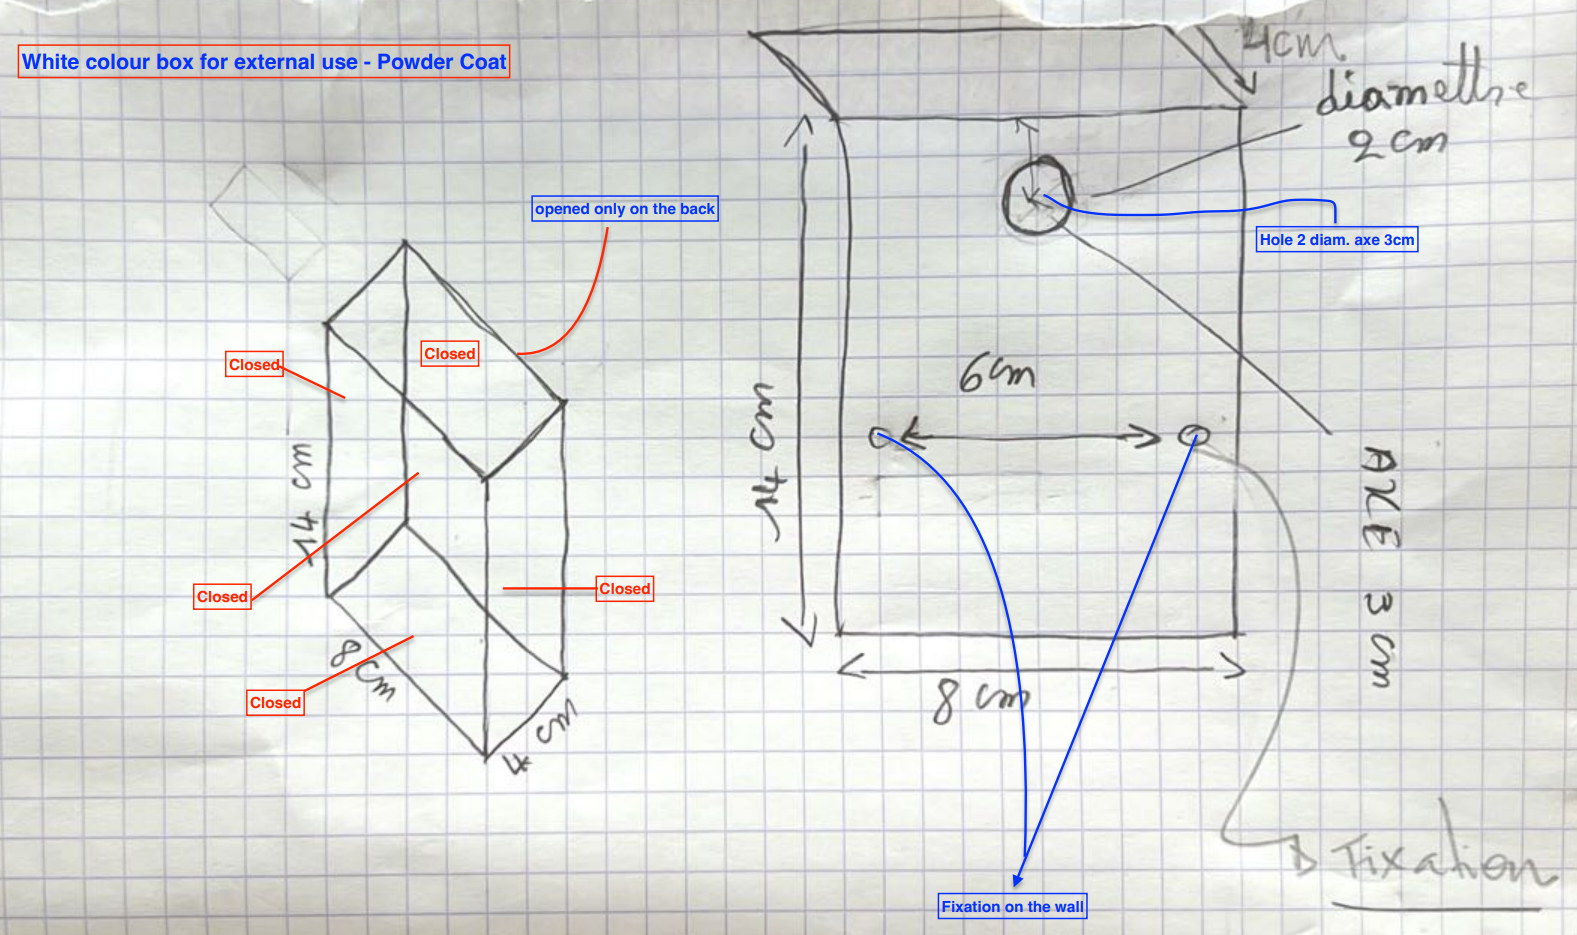 White colour box for external use - Powder Coat
4cm
diamettre
2 cm
opened only on the back
Hole 2 diam. axe 3cm
Closed
Closed
6cm
14 cm
14 cm
AXE 3 cm
Closed
Closed
8cm
Closed
4 cm
8 cm
Fixation
Fixation on the wall